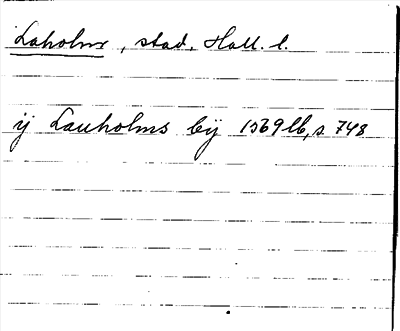 Laholm, stad, Hall. l.
ij Lauholms bÿ 1569 lb, s. 748